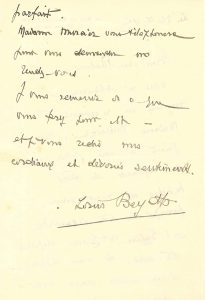 parfait.
Madame Mercier vous téléphonera
pour vous demander un
rendez-vous.
Je vous remercie de ce que
vous ferez pour elle
et vous redis mes
cordiaux et dévoués sentiments.
Louis Bey